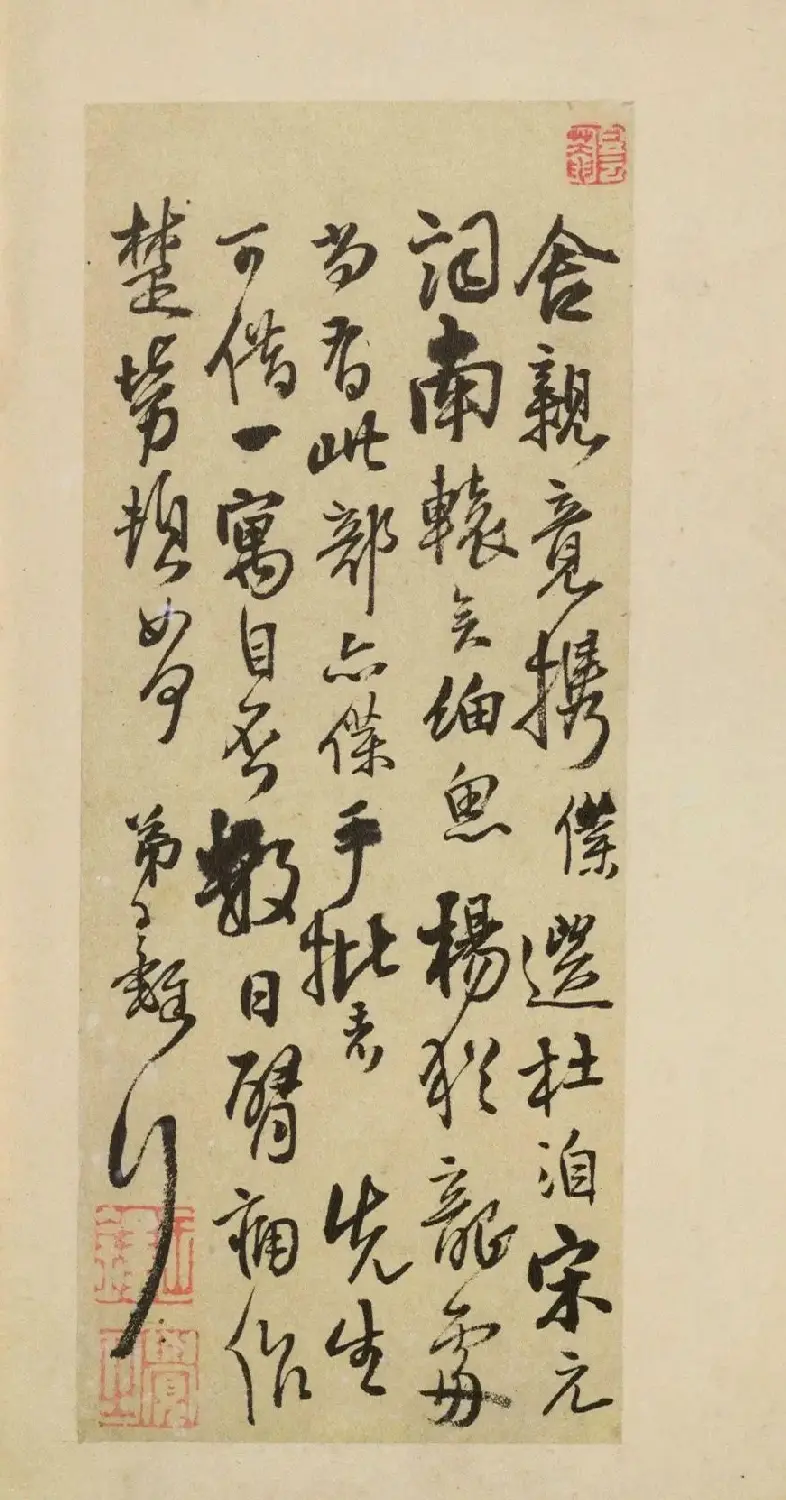 舍親竟攜僕選杜洎宋元
詞南轅矣細思楊猶龍處
尚有此部亦僕手批者先生
可借一寓目否數日臂痛作
楚勞頓如何 弟善繼行